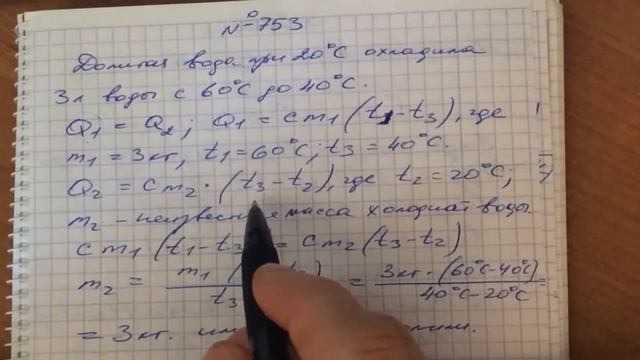 №753
Долитая вода при 20°C охладила
3л воды с 60°C до 40°C.
Q₁ = Q₂; Q₁ = cm₁(t₁-t₃), где
m₁ = 3кг, t₁ = 60°C; t₃ = 40°C.
Q₂ = cm₂·(t₃-t₂), где t₂ = 20°C;
m₂ - неизвестная масса холодной воды.
cm₁(t₁-t₃) = cm₂(t₃-t₂)
m₂ = m₁( / t₃ = 3кг·(60°C-40°C) / 40°C-20°C =
= 3кг.